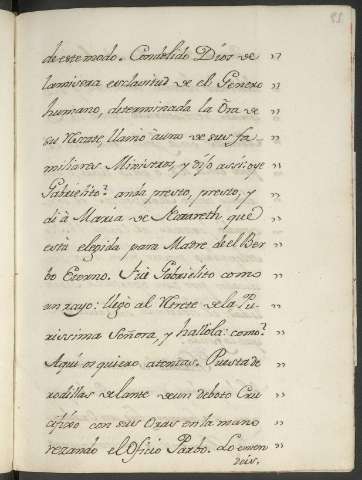 91
de este modo. Condolido Dios de "
la misera esclavitud de el Genero "
humano, determinada la Ora de "
su Verete, llamó à uno de sus fa "
miliares Ministros, y dijo assi: oye "
Gabrielito? anda presto, presto, y "
di à Maria de Nazareth, que "
està elegida para Madre de el Ber "
bo Eterno. Fue Gabrielito como "
un rayo: llego al Verete de la Pu "
rissima Señora, y hallola: como? "
Aqui os quiero atentas. Puesta de "
rodillas delante de un deboto Cru "
cifixo con sus Oras en la mano "
rezando el Oficio Parbo. Lo enten "
deis.